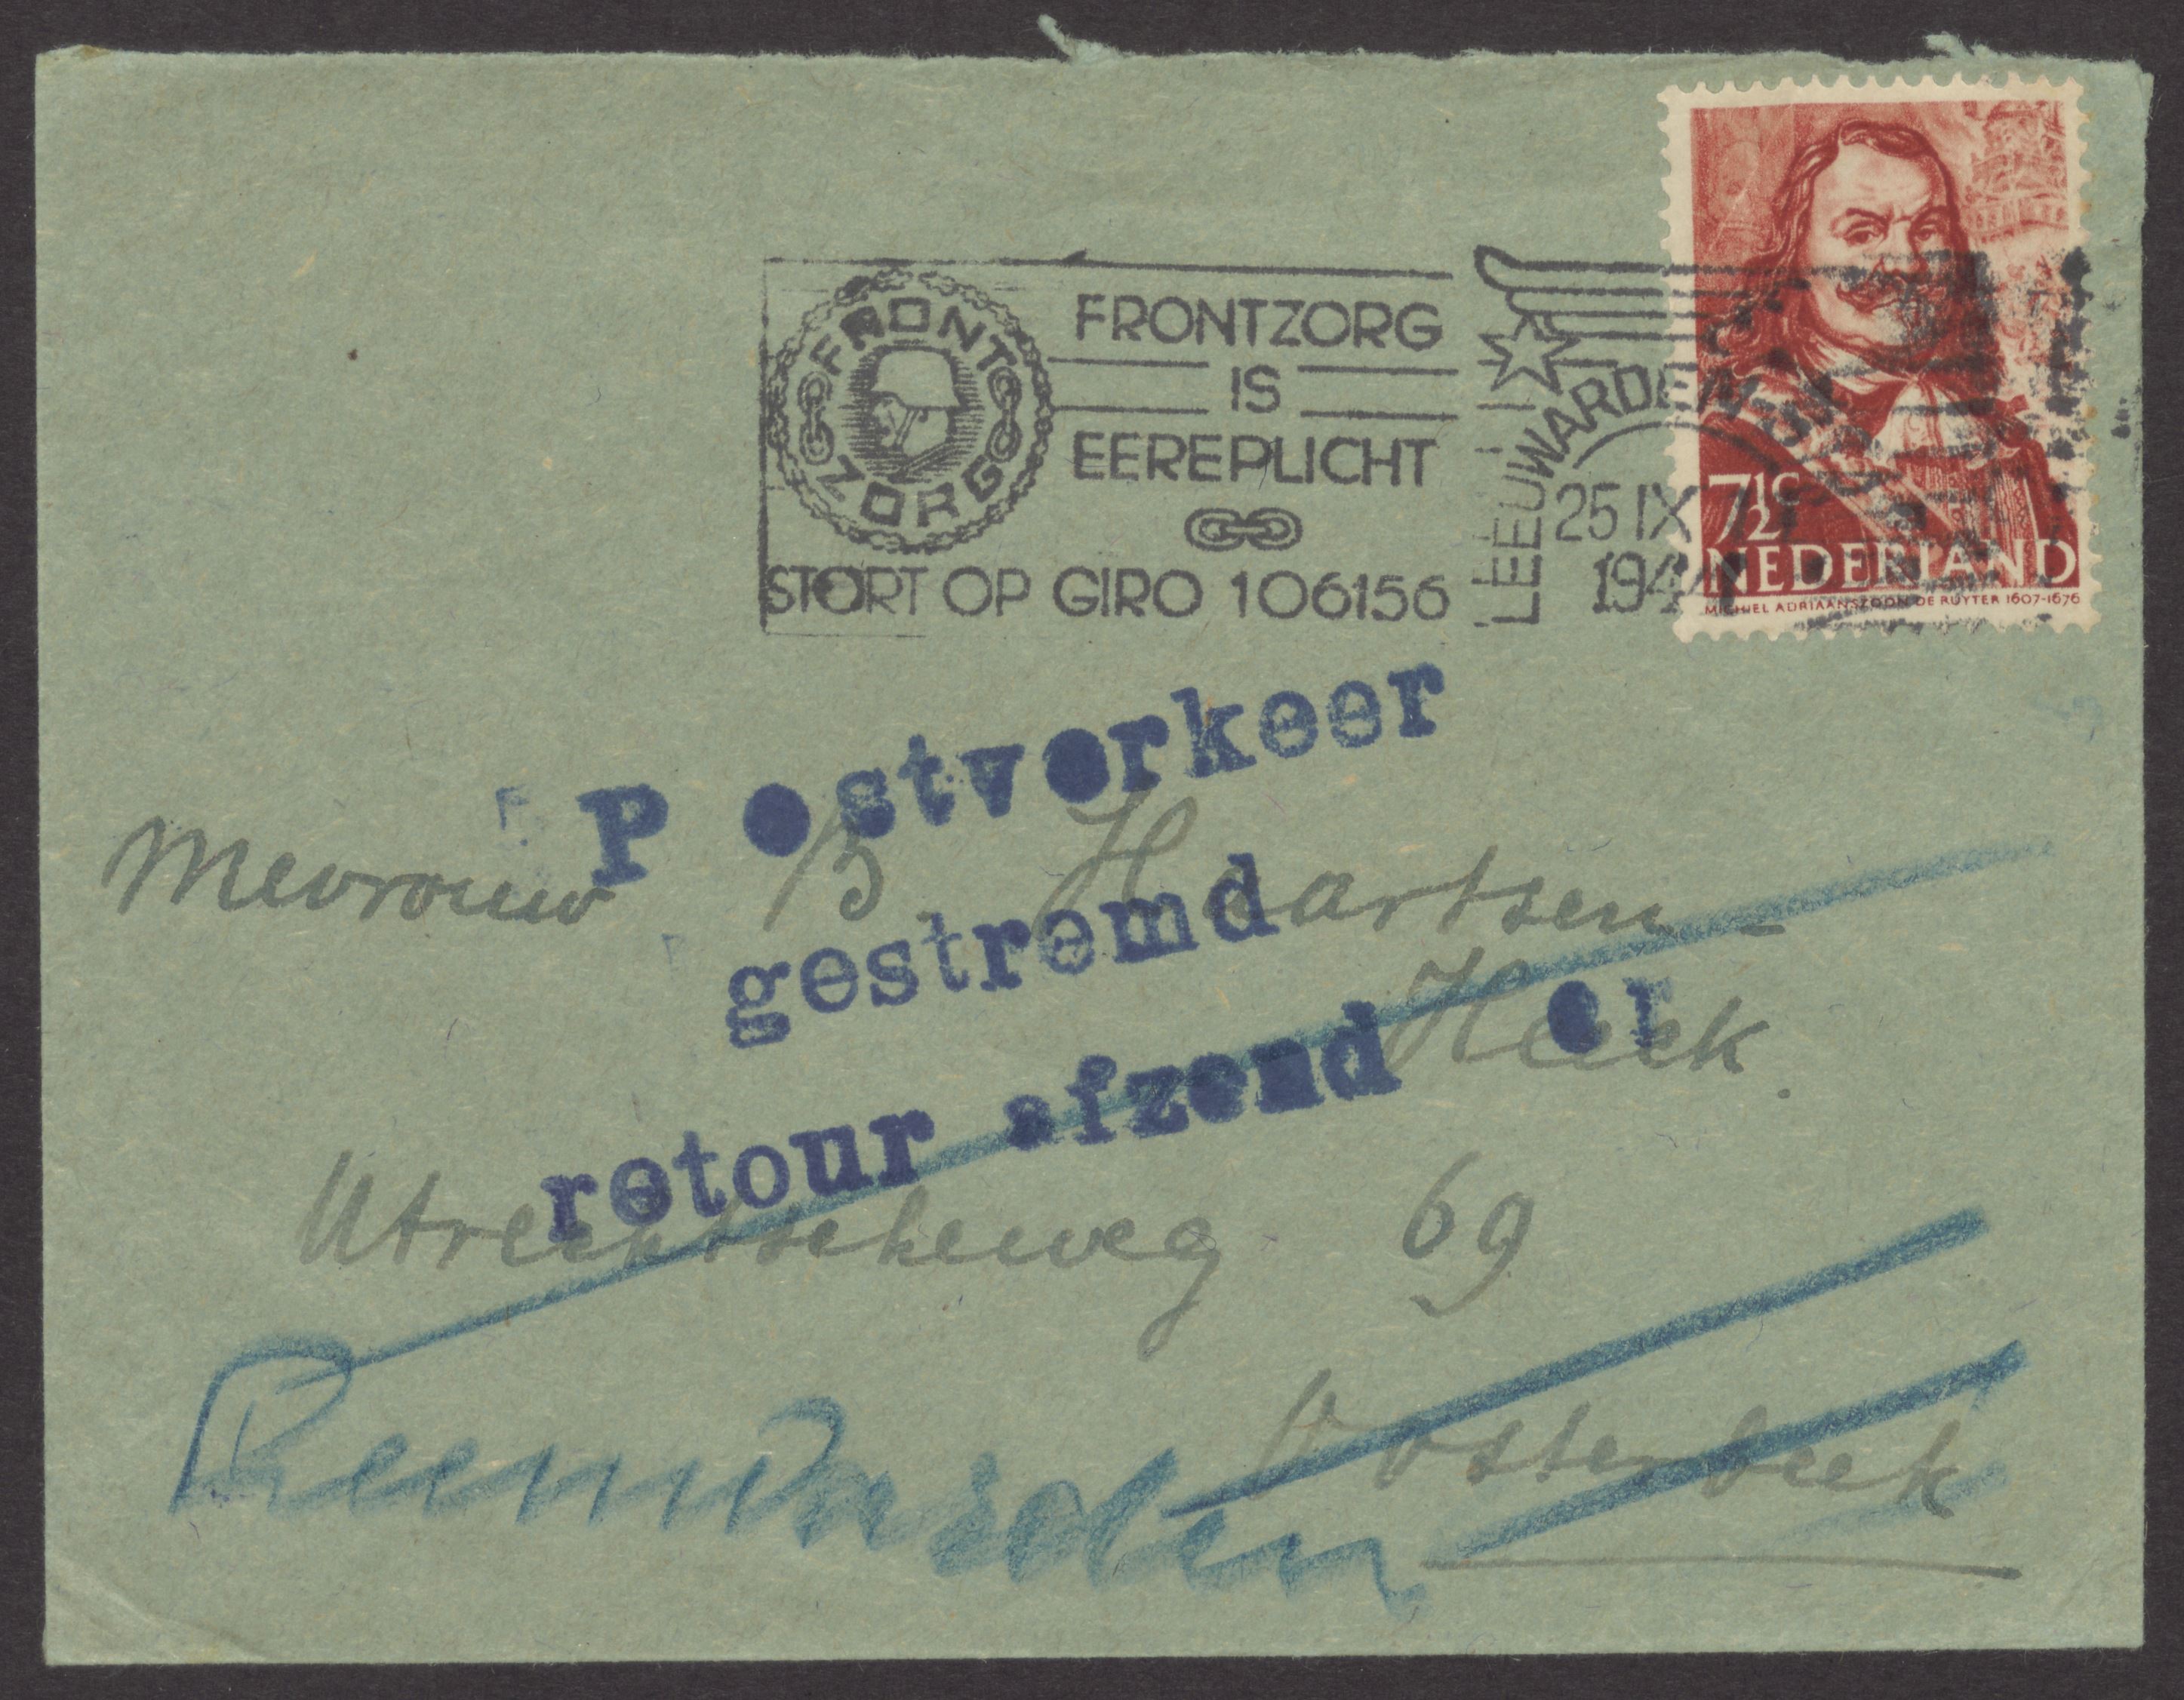 FRONT ZORG
FRONTZORG
IS
EEREPLICHT
STORT OP GIRO 106156
LEEUWARDEN
25 IX
1944
7½ c
NEDERLAND
MICHIEL ADRIAANSZOON DE RUYTER 1607-1676
Postverkeer
gestremd
retour afzender
Mevrouw B. Haartsen-
Utrechtscheweg 69
Oosterbeek